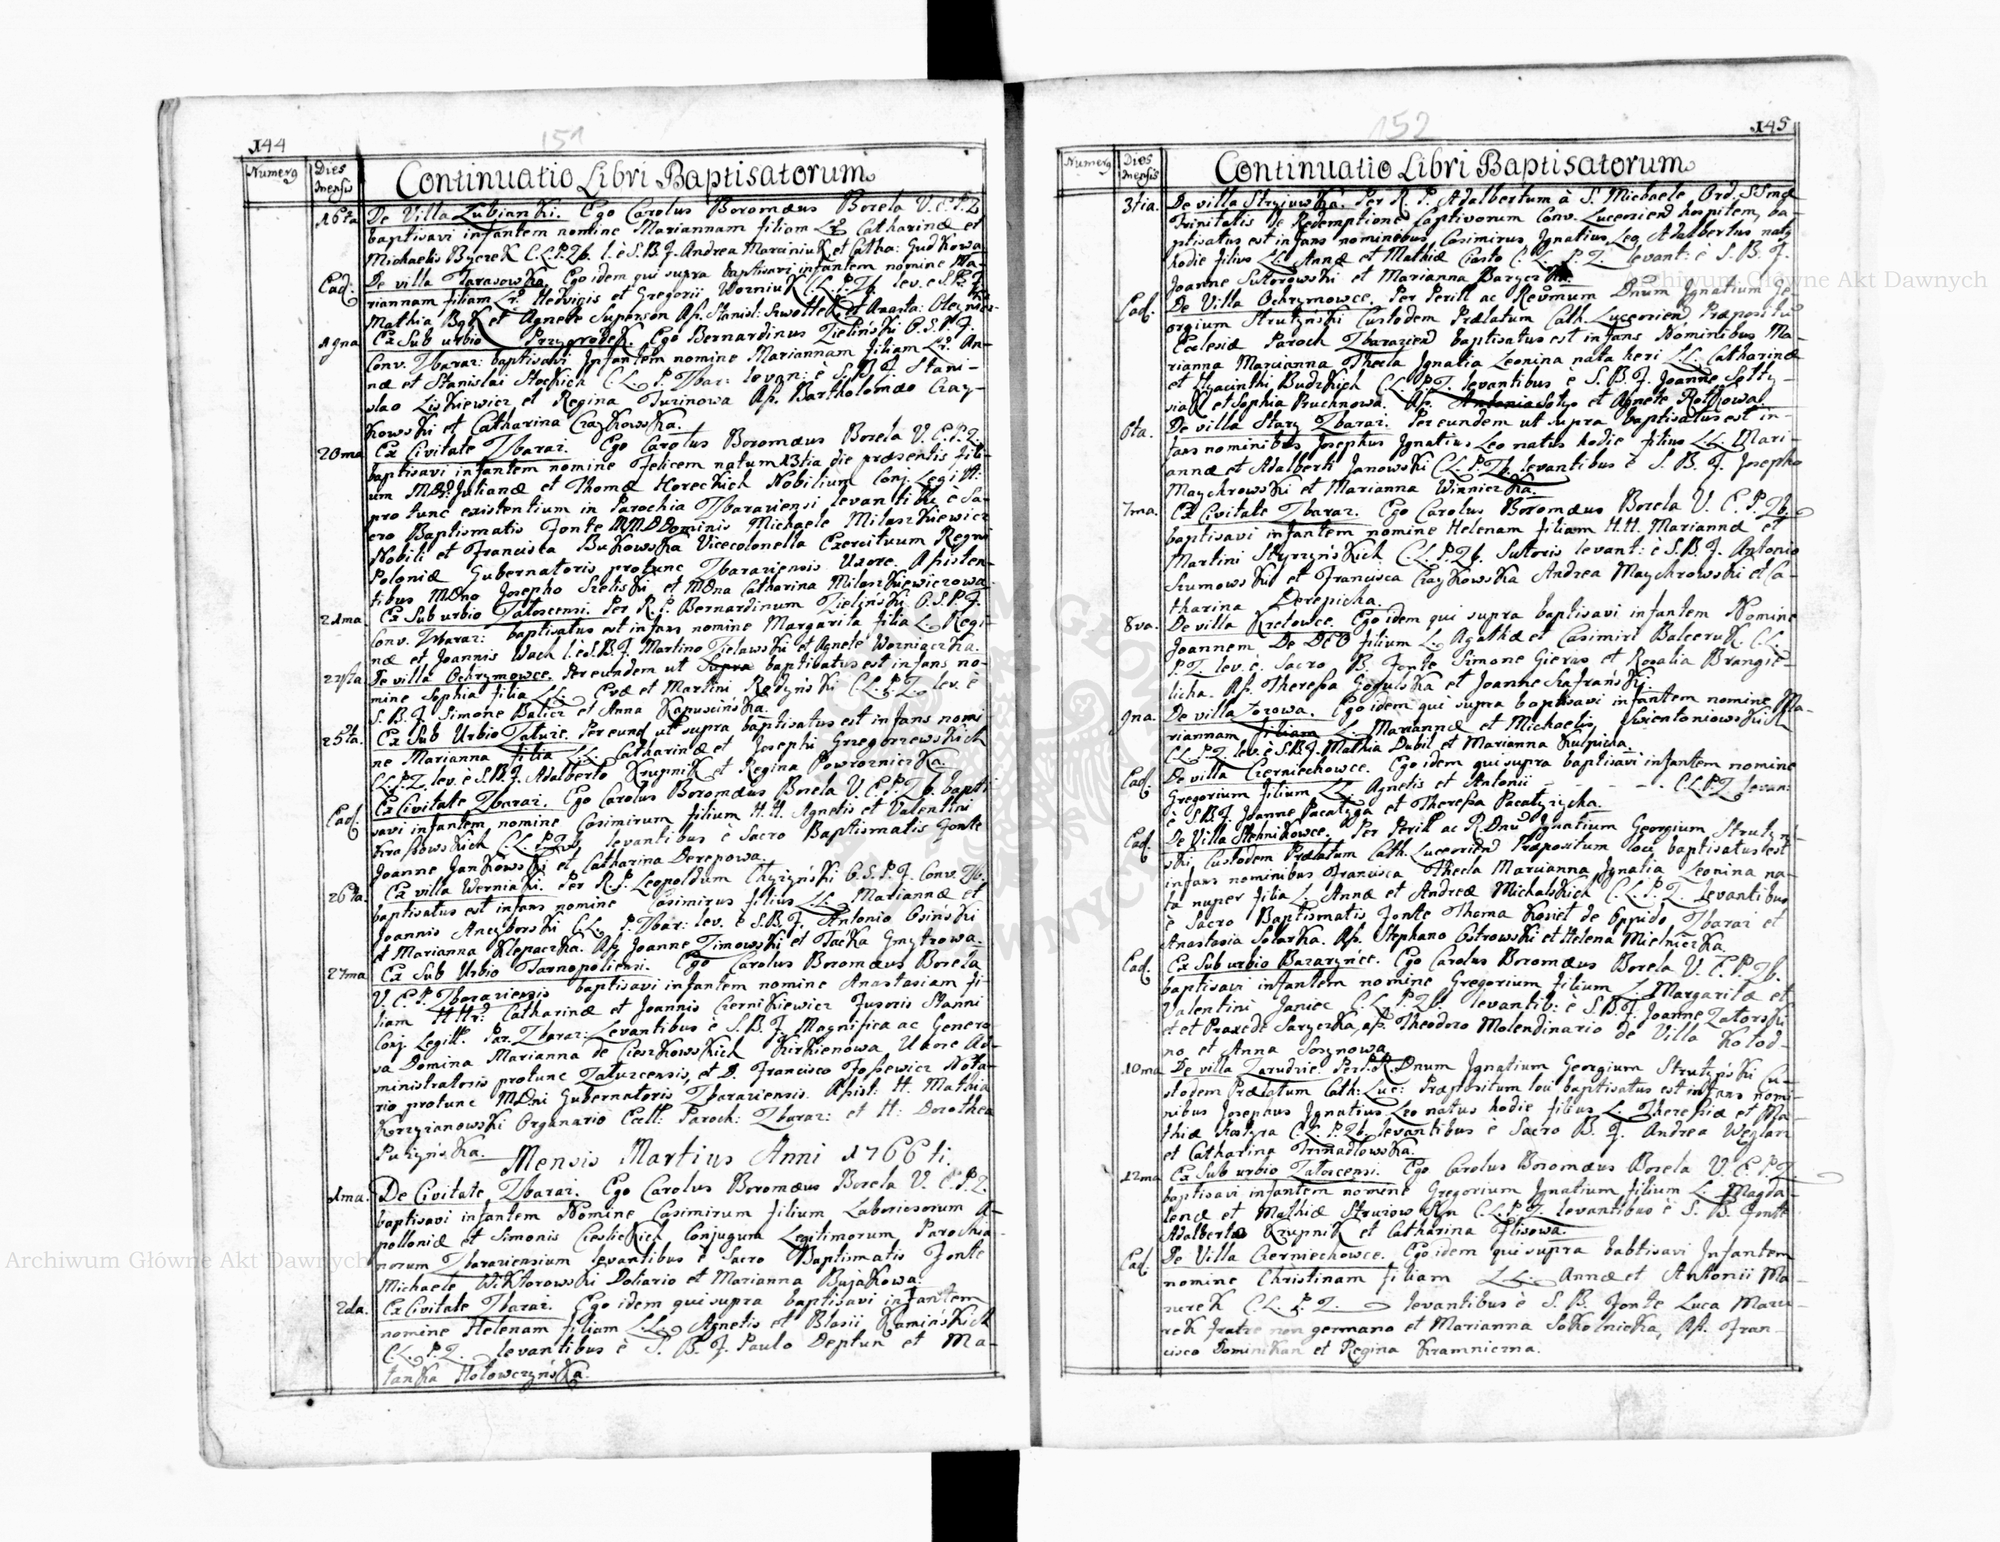 144
151
Numerg
Dies
mensis
Continuatio Libri Baptisatorum
16ta De Villa Lubianki. Ego Carolus Boromæus Borela V. E. P. Z
baptisavi infantem nomine Mariannam filiam Catharinæ et
Michaelis Byczek C.L.P.Zb. l. è S.B.F. Andrea Marciniuk et Catha: Gudkowa
Ead. De villa Tarasowka. Ego idem qui supra baptisavi infantem nomine Ma-
riannam filiam Hedvigis et Gregorii Wozniuk C.L.P.Zb. lev. è S.B.F.
Mathia et Agnete
19na Ex Sub urbio Przygrodek. Ego Bernardinus Zieliński O.S.P.F.
Conv. Zbaraz: baptisavi Infantem nomine Mariannam filiam An-
næ et Stanislai Stockich C.L.P. Zbar: levan: è S.B.F. Stani-
slao Liskiewicz et Regina Turinowa Aß. Bartholomæo Czay-
kowski et Catharina Czaykowska.
20ma Ex Civitate Zbaraz. Ego Carolus Boromæus Borela V. E. P. Z.
baptisavi infantem nomine Felicem natum 13tia die præsentis fili-
um Julianæ et Thomæ Horeckich Nobilium Conj. Legitt.
pro tunc existentium in Parochia Zbaraziensi levantibus è Sa-
cro Baptismatis Fonte MMDDominis Michaele Milaszkiewicz
Nobili et Francisca Bukowska Vicecolonella Exercituum Regni
Poloniæ Gubernatoris protunc Zbaraziensis Uxore. Assisten-
tibus MDno Josepho Szeliski et MDna Catharina Milaszkiewiczowa.
21ma. Ex Sub urbio Zaloscensi. Per R. P. Bernardinum Zieliński O.S.P.F.
Conv. Zbaraz: baptisatus est infans nomine Margarita filia L. Regi-
næ et Joannis Wach l. è S.B.F. Martino Zielawski et Agnete Wozniaczka.
De villa Ochrymowce. Per eundem ut supra baptisatus est infans no-
mine Sophia filia LL. Evæ et Martini Radzyński C.L.P.Z. lev. è
S. B. F. Simone Balicz et Anna Kapuscińska.
25ta. Ex Sub Urbio Zaluze. Per eund ut supra baptisatus est infans nomi
ne Marianna filia LL. Catharinæ et Josephi Grzegorzewskich
C.L.P.Z. lev. è S.B.F. Adalberto Krupnik et Regina Powrozniczka.
Ead. Ex Civitate Zbaraz. Ego Carolus Boromæus Borela V. E. P. Zb. bapti
savi infantem nomine Casimirum filium H.H. Agnetis et Valentini
Krassowskich C.L.P.Zb. levantibus è Sacro Baptismatis Fonte
Joanne Jankowski et Catharina Derepowa.
26ta. Ex villa Werniaki. Per R.P. Leopoldum Chyzyński O.S.P.F. Conv. Zb.
baptisatus est infans nomine Casimirus filius LL. Mariannæ et
Joannis Anczborski C.L. P. Zbar: lev. è S.B.F. Antonio Osiński
et Marianna Klepaczka. Aß. Joanne Zimowski et Taćka Gmytrowa.
27ma Ex Sub Urbio Tarnopoliensi. Ego Carolus Boromæus Borela
V. E. P. Zbaraziensis baptisavi infantem nomine Anastasiam fi-
liam Catharinæ et Joannis Czernikiewicz Fusoris Stanni
Conj. Legitt. Par. Zbaraz: Levantibus è S. B. F. Magnifica ac Genero
sa Domina Marianna de Cieszkowskich Kirkienowa Uxore Ad-
ministratoris protunc Zaluzcensis, et D. Francisco Fossewicz Nota-
rio protunc MDni Gubernatoris Zbaraziensis. Assist: H. Mathia
Korzyianowski Organario Eccll: Paroch: Zbaraz: et H: Dorothea
Pukzyńska.
Mensis Martius Anni 1766ti.
1ma. De Civitate Zbaraz. Ego Carolus Boromæus Borela V. E. P. Z.
baptisavi infantem Nomine Casimirum filium Laboriosorum A-
polloniæ et Simonis Cieslickich Conjugum Legitimorum Parochia-
norum Zbaraziensium levantibus è Sacro Baptismatis Fonte
Michaele Wiktorowski Doliario et Marianna Bujakowa.
2da. Ex Civitate Zbaraz. Ego idem qui supra baptisavi infantem
nomine Helenam filiam LL. Agnetis et Blasii Kamińskich
C.L. P. Z. levantibus è S. B. F. Paulo Deptun et Ma-
lanka Hołowczyńska.
145
152
Numerg
Dies
mensis
Continuatio Libri Baptisatorum
3tia. De villa Stryiowka. Per R. P. Adalbertum à S. Michaele Ord. SSmæ
Trinitatis de Redemptione Captivorum Conv. Luceorien hospitem, ba-
ptisatus est infans nominibus Casimirus Ignatius Leo Adalbertus natg
hodie filius LL. Annæ et Mathiæ Ciasto C. L. P. Z. levant: è S. B. F.
Joanne Sutorowski et Marianna
Ead. De Villa Ochrymowce. Per Perill ac Revmum Dnum Ignatium Ge-
orgium Strutyński Custodem Prælatum Cath. Luceorien Præpositũ
Ecclesiæ Paroch Zbarazien baptisatus est infans Nominibus Ma-
rianna Marcianna Thecla Ignatia Leonina nata heri LL. Catharinæ
et Hyacinthi Budzkich C.L.P.Z. levantibus è S. B. F. Joanne
et Sophia Pruchnowa. Aß. et Agnete
6ta. De villa Stary Zbaraz. Per eundem ut supra baptisatus est in-
fans nominibus Josephus Ignatius Leo natus hodie filius LL. Mari-
annæ et Adalberti Janowski C.L.P.Zb. levantibus è S. B. F. Josepho
Maychrowski et Marianna Winniczka.
7ma. Ex Civitate Zbaraz. Ego Carolus Boromæus Borela V. E. P. Zb.
baptisavi infantem nomine Helenam filiam H.H. Mariannæ et
Martini Styrzyńskich C.L.P.Zb. Sutoris levant: è S.B.F. Antonio
Szumowski et Francisca Czaykowska Andrea Maychrowski et Ca-
tharina Derepicha.
8va. De villa Kretowce. Ego idem qui supra baptisavi infantem Nomine
Joannem De DEO filium L. Agathæ et Casimiri Balceruk. C.L.
P.Z. lev. è. Sacro B. Fonte Simone Gieras et Rosalia Brangie-
licha. Aß. Theressa Gogulska et Joanne Szafrański.
9na. De villa Lozowa. Ego idem qui supra baptisavi infantem nomine Ma-
riannam filiam L. Mariannæ et Michaelis Swientoniowskich
C.L.P.Z. lev. è S.B.F. Mathia Dubil et Marianna Kulpicha.
Ead. De villa Czerniechowce. Ego idem qui supra baptisavi infantem nomine
Gregorium filium LL. Agnetis et Antonii - - - - C.L.P.Z. levan:
è S.B.F. Joanne Pacałyga et Theressa Pacałyzycha.
Ead. De Villa Stehnikowce. Per Perill ac R.Dnũ Ignatium Georgium Strutyń-
ski, Custodem Prælatum Cath. Luceorien Præpositum loci baptisatus est
infans nominibus Francisca Thecla Marcianna Ignatia Leonina na-
ta nuper filia L. Annæ et Andreæ Michalskich C. L. P. Z. levantibus
è Sacro Baptismatis Fonte Thoma Kosiet de Oppido Zbaraz et
Anastasia Solarka. Aß. Stephano Ostrowski et Helena Mielniczka.
Ead. Ex Sub urbio Bazaryńce. Ego Carolus Boromæus Borela V. E. P. Zb.
baptisavi infantem nomine Gregorium filium L. Margaritæ et
Valentini Janiec C. L. P. Zb. levantib: è S.B.F. Joanne Zatorski
et Praxede Saryczka, aß. Theodoro Molendinario de Villa Kołod-
no et Anna Sosznowa.
10ma De villa Zarudzie Per P.R.Dnum Ignatium Georgium Strutyński Cu-
stodem Prælatum Cath: Luc: Præpositum loci baptisatus est infans nomi-
nibus Josephus Ignatius Leo natus hodie filius L. Theressiæ et Ma-
thiæ Kostyra C.L. P. Zb. levantibus è Sacro B. F. Andrea Węglarz
et Catharina Trinadłowska.
12ma Ex Sub urbio Zaloscensi. Ego Carolus Boromæus Borela V. E. P. Z
baptisavi infantem nomine Gregorium Ignatium filium L. Magda-
lenæ et Mathiæ C.L.P.Z. levantibus è S. B. Fonte
Adalberto Krupnik et Catharina Flisowa.
Ead. De Villa Czerniechowce. Ego idem qui supra babtisavi Infantem
nomine Christinam filiam L.L. Annæ et Antonii Ma-
zurek C.L. P. Z. levantibus è S. B. Fonte Luca Mazu-
rek fratre non germano et Marianna Sokolnicka, Aß. Fran-
cisco Dominikan et Regina Kramniczna.
Archiwum Główne Akt Dawnych
Archiwum Główne Akt Dawnych